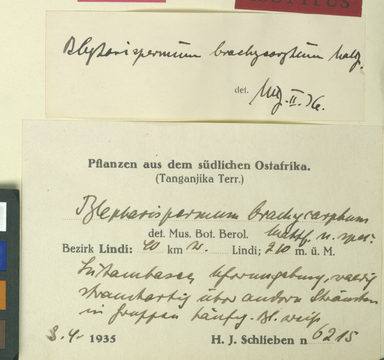 Blepharispermum brachycarpum Mattf.
det. II.36.
Pflanzen aus dem südlichen Ostafrika.
(Tanganjika Terr.)
Blepharispermum brachycarpum
det. Mus. Bot. Berol. Mattf. n. spec.
Bezirk Lindi: 40 km W. Lindi; 240 m. ü. M.
strauchartig über andern Sträuchern
in Gruppen häufig. Bl. weiß
3.4. 1935 H. J. Schlieben n 6215